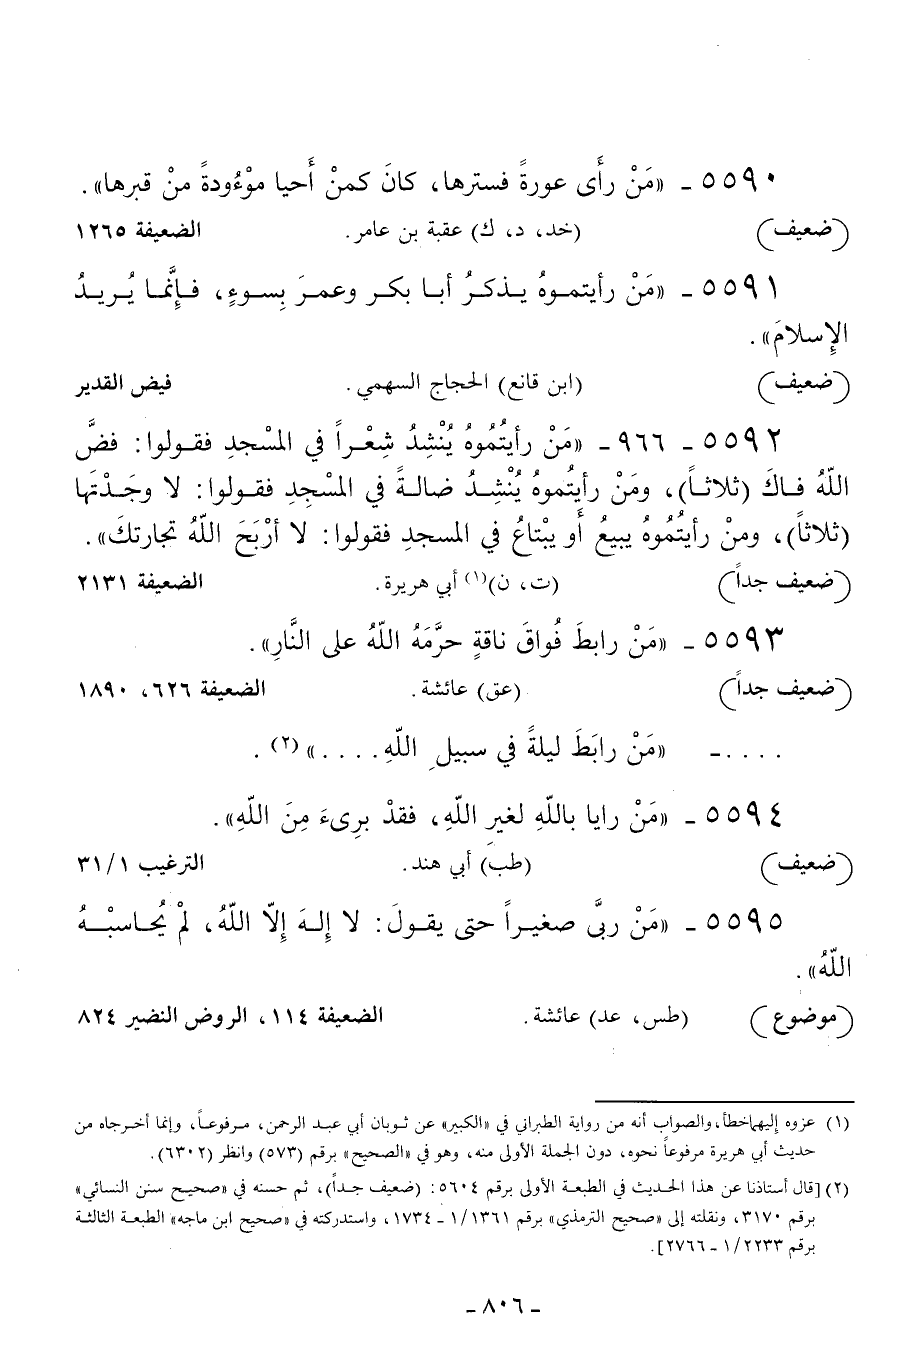 ٥٥٩٠ ـ «مَنْ رأَى عورةً فسترها، كانَ كمنْ أَحيا موْءُودةً منْ قبرها».
(ضعيف) (خد، د، ك) عقبة بن عامر. الضعيفة ١٢٦٥
٥٥٩١ ـ «مَنْ رأيتموهُ يذكرُ أبا بكر وعمرَ بِسوءٍ، فإِنَّما يُريدُ
الإِسلامَ».
(ضعيف) (ابن قانع) الحجاج السهمي. فيض القدير
٥٥٩٢ ـ ٩٦٦ـ «مَنْ رأيتُمُوهُ يُنْشِدُ شِعْراً في المسْجدِ فقولوا: فضَّ
اللّهُ فاكَ (ثلاثاً)، ومَنْ رأيتُموهُ يُنْشِدُ ضالةً في المسْجِدِ فقولوا: لا وجَدْتَها
(ثلاثاً)، ومنْ رأيتُمُوهُ يبيعُ أَو يبْتاعُ في المسجدِ فقولوا: لا أرْبَحَ اللّهُ تجارتكَ».
(ضعيف جداً) (ت، ن)(١) أبي هريرة. الضعيفة ٢١٣١
٥٥٩٣ ـ «مَنْ رابطَ فُواقَ ناقةٍ حرَّمَهُ اللّهُ على النَّارِ».
(ضعيف جداً) (عق) عائشة. الضعيفة ٦٢٦، ١٨٩٠
....ـ «مَنْ رابَطَ ليلةً في سبيلِ اللّهِ....»(٢).
٥٥٩٤ ـ «مَنْ رايا باللّهِ لغيرِ اللّهِ، فقدْ برِىءَ مِنَ اللّهِ».
(ضعيف) (طب) أبي هند. الترغيب ٣١/١
٥٥٩٥ ـ «مَنْ ربَّى صغيراً حتى يقولَ: لا إِلهَ إِلاّ اللّهُ، لمْ يُحاسبْهُ
اللّهُ».
(موضوع) (طس، عد) عائشة. الضعيفة ١١٤، الروض النضير ٨٢٤
(١) عزوه إليهما خطأ، والصواب أنه من رواية الطبراني في «الكبير» عن ثوبان أبي عبد الرحمن، مرفوعاً، وإنما أخرجاه من
حديث أبي هريرة مرفوعاً نحوه، دون الجملة الأولى منه، وهو في «الصحيح» برقم (٥٧٣) وانظر (٦٣٠٢).
(٢) [قال أستاذنا عن هذا الحديث في الطبعة الأولى برقم ٥٦٠٤: (ضعيف جداً)، ثم حسنه في «صحيح سنن النسائي»
برقم ٣١٧٠، ونقلته إلى «صحيح الترمذي» برقم ١/١٣٦١ ـ ١٧٣٤، واستدركته في «صحيح ابن ماجه» الطبعة الثالثة
برقم ١/٢٢٣٣ ـ ٢٧٦٦].
ـ ٨٠٦ ـ